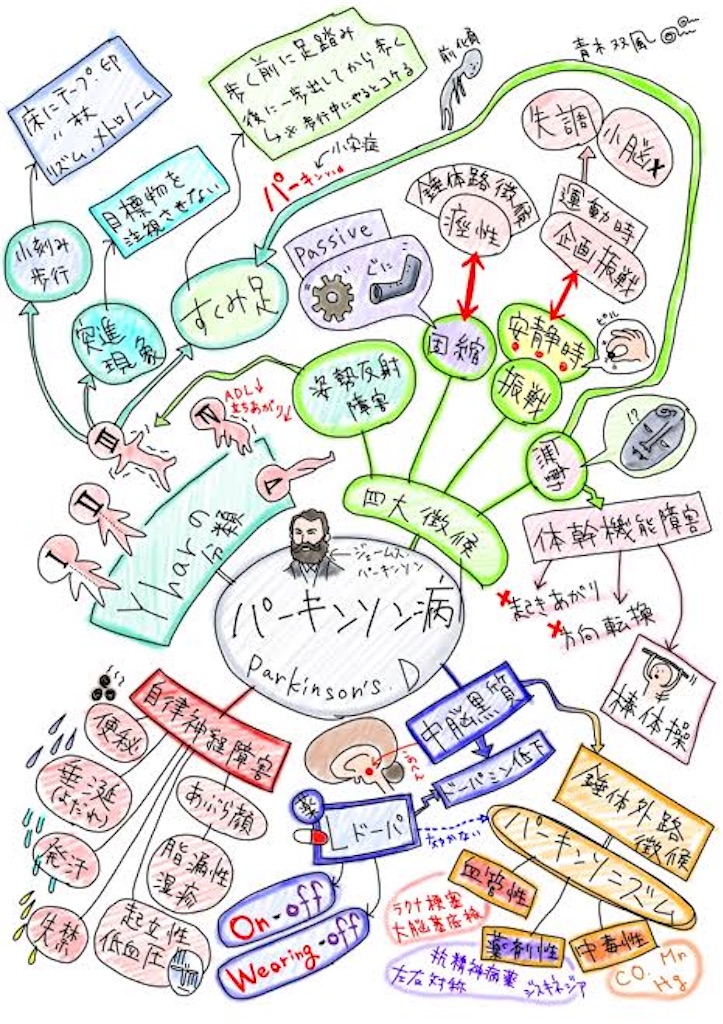 青木双風
前傾
床にテープ・印
〃 杖
リズム、メトロノーム
歩く前に足踏み
後に一歩出してから歩く
↳※歩行中にやるとコケる
小字症
パーキンソン
失調
小脳X
目標物を
注視させない
錐体路徴候
痙性
運動時
企画振戦
Passive
ぐに
小刻み
歩行
すくみ足
突進
現象
固縮
安静時
振戦
ピル
!?
ADL↓
立ちあがり↓
姿勢反射
障害
III
IV
V
II
I
Yharの
分類
四大徴候
体幹機能障害
×起きあがり
×方向転換
棒体操
ジェームス・
パーキンソン
パーキンソン病
parkinson's. D
自律神経障害
便秘
垂涎
(よだれ)
発汗
失禁
あぶら顔
脂漏性
湿疹
起立性
低血圧
中脳黒質
ドーパミン低下
薬
Lドーパ
効かない
On-off
Wearing-off
錐体外路
徴候
パーキンソニズム
血管性
ラクナ梗塞
大脳基底核
薬剤性
抗精神病薬
左右対称
ジスキネジア
中毒性
CO. Mn
Hg